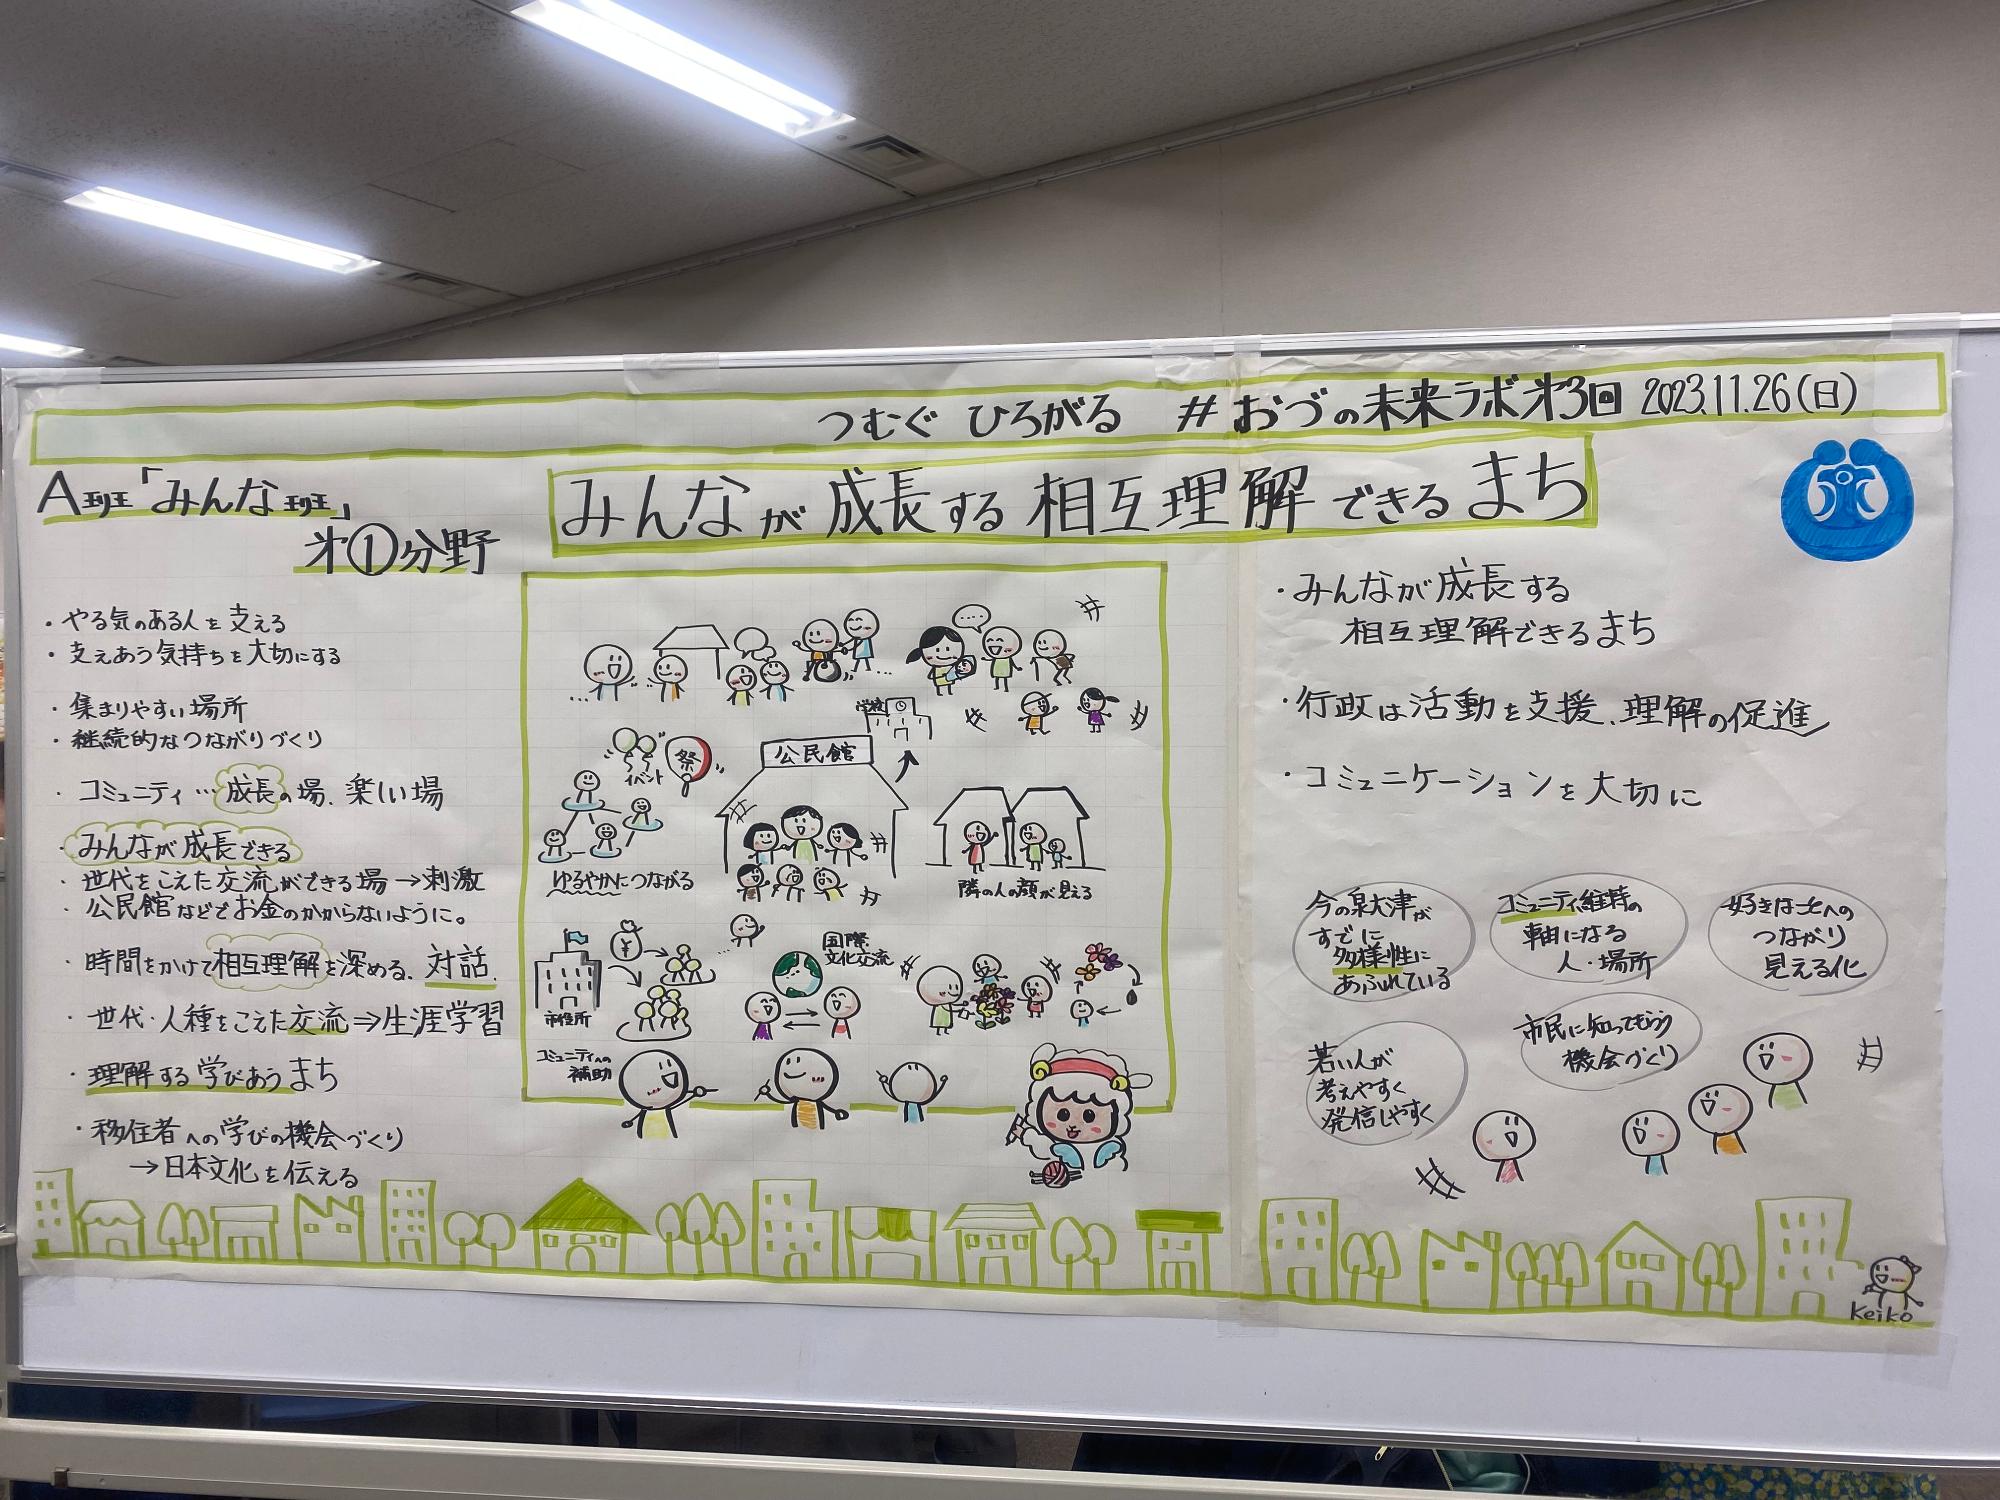 つむぐ ひろがる #おづの未来ラボ 第3回 2023.11.26(日)
A班「みんな班」
第①分野
みんなが成長する相互理解できるまち
・やる気のある人を支える
・支えあう気持ちを大切にする
・集まりやすい場所
・継続的なつながりづくり
・コミュニティ…成長の場、楽しい場
・みんなが成長できる
・世代をこえた交流ができる場→刺激
・公民館などでお金のかからないように。
・時間をかけて相互理解を深める、対話
・世代・人種をこえた交流⇒生涯学習
・理解する学びあうまち
・移住者への学びの機会づくり
→日本文化を伝える
学校
イベント
祭
公民館
ゆるやかにつながる
隣の人の顔が見える
¥
市役所
コミュニティへの
補助
国際
文化交流
・みんなが成長する
相互理解できるまち
・行政は活動を支援、理解の促進
・コミュニケーションを大切に
今の泉大津が
すでに
多様性に
あふれている
コミュニティ維持の
軸になる
人・場所
好きなことへの
つながり
見える化
若い人が
考えやすく
発信しやすく
市民に知ってもらう
機会づくり
Keiko